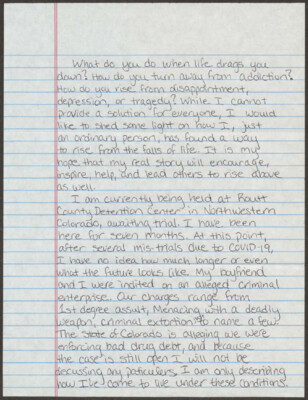 What do you do when life drags you
down? How do you turn away from addiction?
How do you rise from disappointment,
depression, or tragedy? While I cannot
provide a solution for everyone, I would
like to shed some light on how I, just
an ordinary person, has found a way
to rise from the falls of life. It is my
hope that my real story will encourage,
inspire, help, and lead others to rise above
as well.
I am currently being held at Routt
County Detention Center in Northwestern
Colorado, awaiting trial. I have been
here for seven months. At this point,
after several mis-trials due to COVID-19,
I have no idea how much longer or even
what the future looks like. My boyfriend
and I were indited on an alleged criminal
enterprise. Our charges range from
1st degree assult, Menacing with a deadly
weapon, criminal extortion to name a few.
The State of Colorado is alleging we were
enforcing bad drug debt, and because
the case is still open I will not be
discussing any particulers. I am only describing
how I've come to live under these conditions.